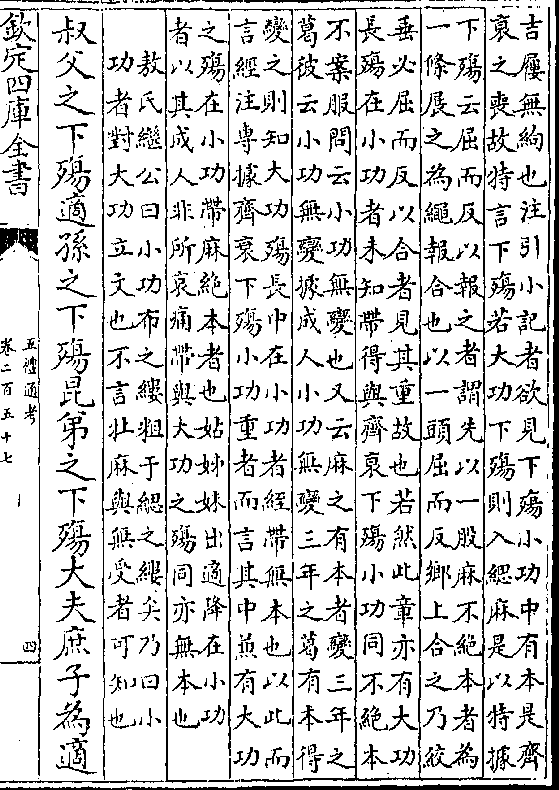 吉屨無絇也注引小記者欲見下殤小功中有本是齊
衰之喪故特言下殤若大功下殤則入緦麻是以特據
下殤云屈而反以報之者謂先以一股麻不絕本者為
一條展之為繩報合也以一頭屈而反鄉上合之乃絞
垂必屈而反以合者見其重故也若然此章亦有大功
長殤在小功者未知帶得與齊衰下殤小功同不絕本
不案服問云小功無變也又云麻之有本者變三年之
葛彼云小功無變據成人小功無變三年之葛有本得
變之則知大功殤長中在小功者絰帶無本也以此而
言經注專據齊衰下殤小功重者而言其中兼有大功
之殤在小功帶麻絕本者也姑姊妹出適降在小功
者以其成人非所哀痛帶與大功之殤同亦無本也
敖氏繼公曰小功布之縷粗于緦之縷矣乃曰小
功者對大功立文也不言牡麻與無受者可知也
叔父之下殤適孫之下殤昆弟之下殤大夫庶子為適
欽定四庫全書
五禮通考
卷二百五十七
四